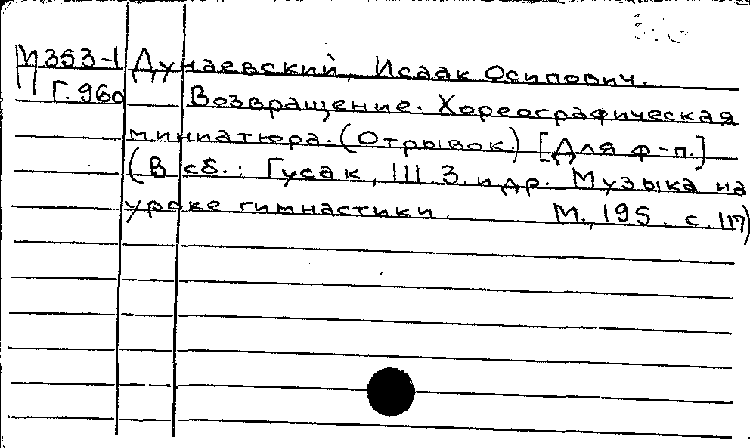 М353-1 Дунаевский, Исаак Осипович.
Г.960 Возвращение. Хореографическая
миниатюра. (Отрывок.) [Для ф-п.]
(В сб.: Гусак, Ш.З. и др. Музыка на
уроке гимнастики М., 195 . с. 117)